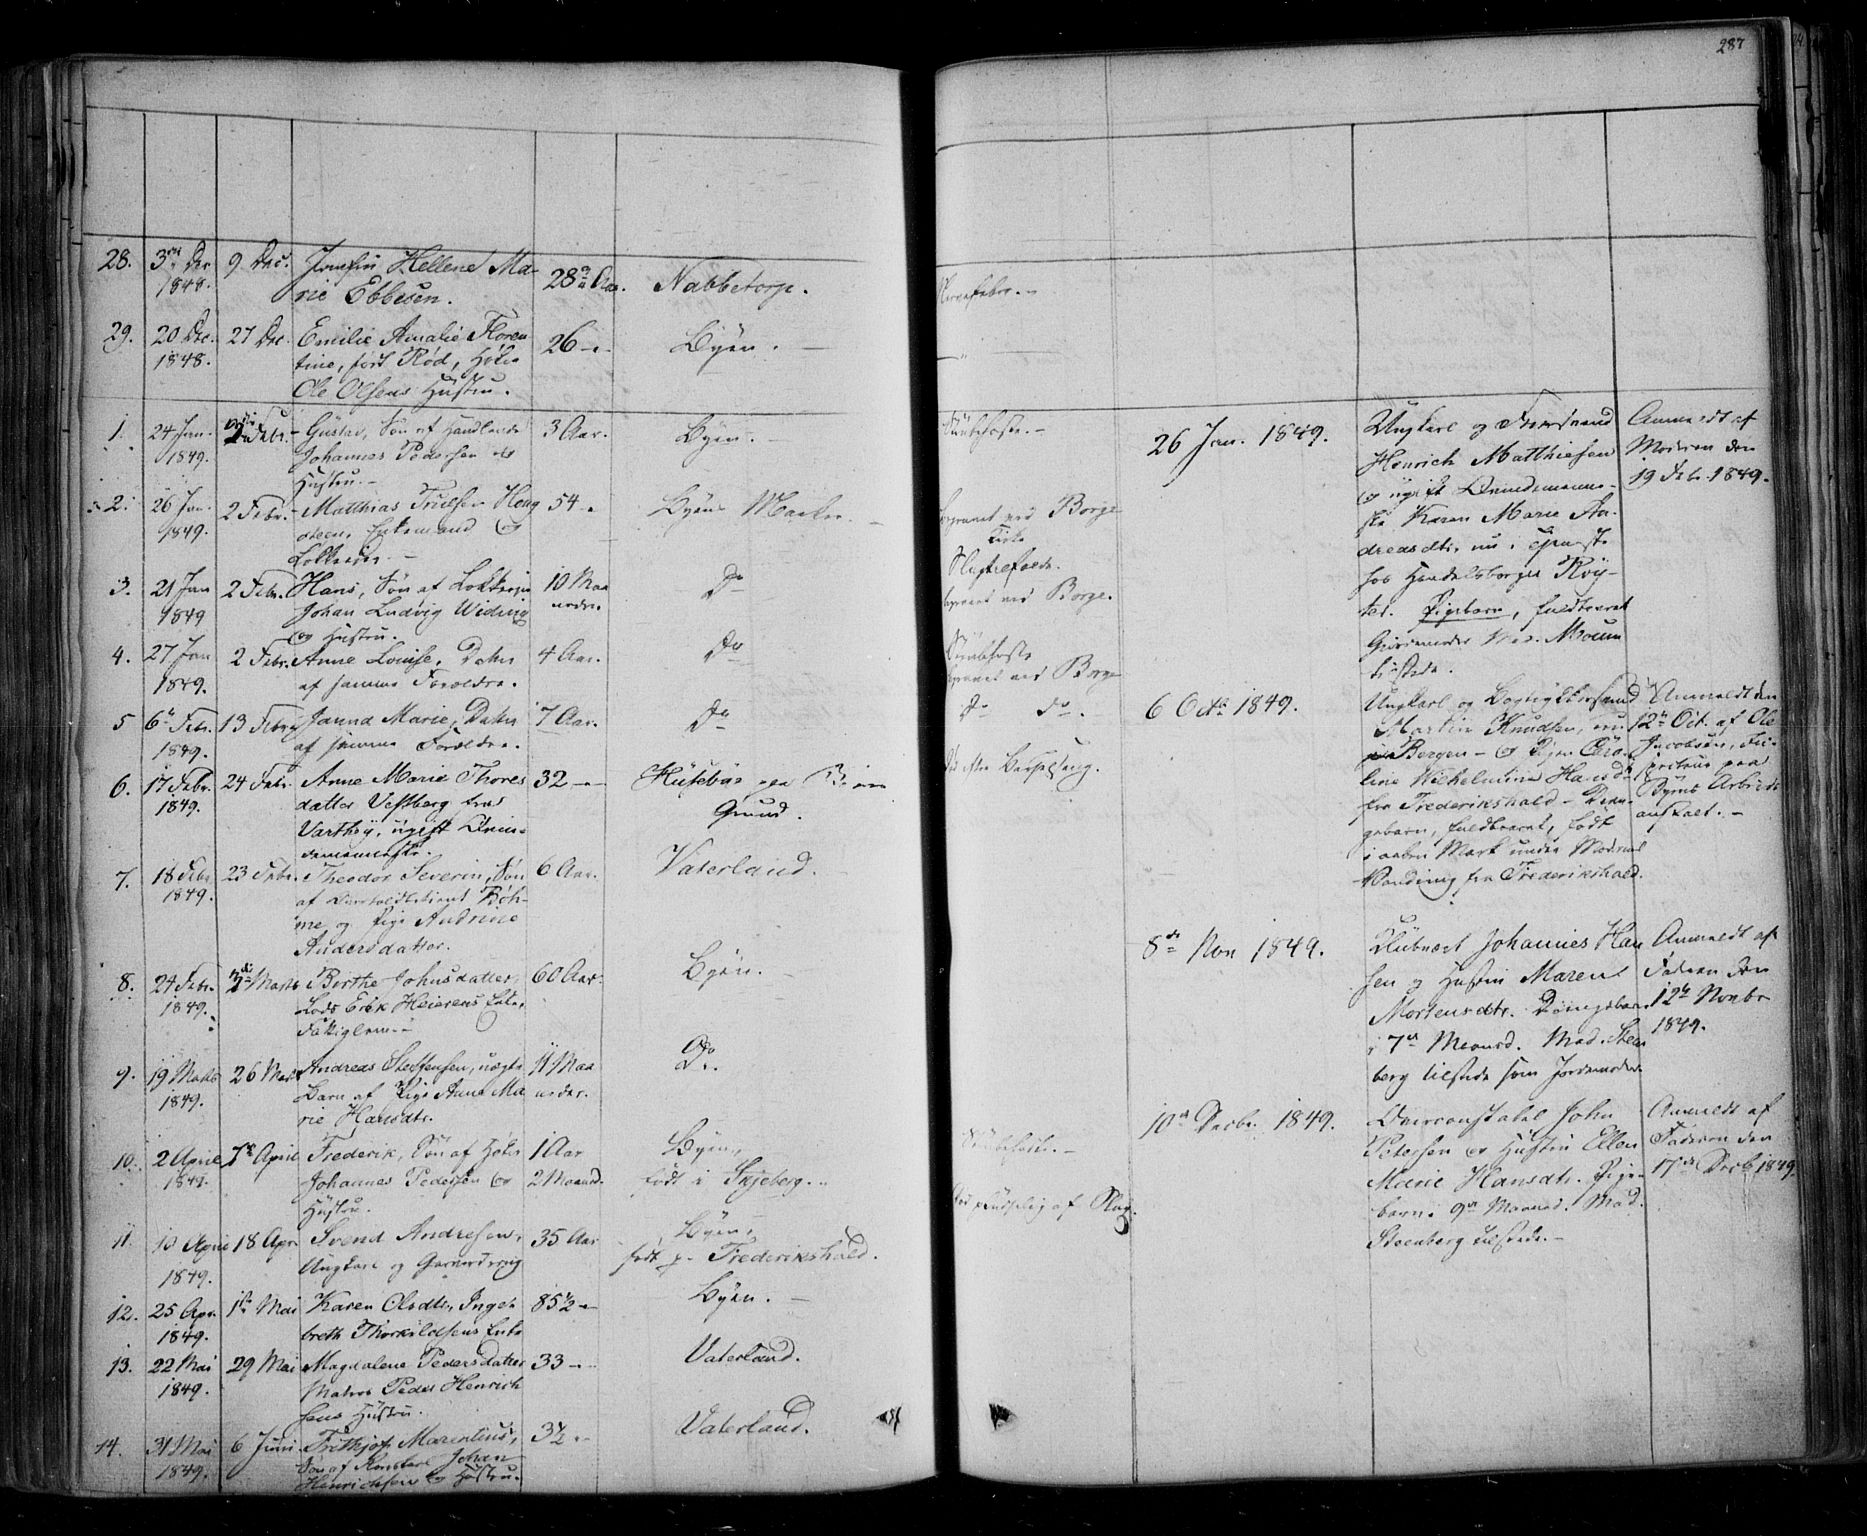 287
28. 3die Dec 1848. 9 Dec. Jomfru Hellene Ma-
rie Ebbesen. 28 Aar. Nabbetorp.
29. 20 Dec. 1848. 27 Dec. Emilie Amalie Floren
tine, født Rød, Høker
Ole Olsens Hustru. 26 - Byen.
1. 24 Jan. 1849. Febr. Gustav, Søn af Handlende
Johannes Pedersen og
Hustru. 3 Aar. Byen.
2. 26 Jan. 1849. 2 Febr. Matthias Trulsen Heng
steen, Enkemand og
54 - Byens Marker.
3. 21 Jan 1849 2 Febr. Hans, Søn af
Johan Ludvig Widing
og Hustru. 10 Maa
neder. Do
4. 27 Jan 1849. 2 Febr. Anne Louise, Datter
af samme Forældre. 4 Aar. Do
5 6te Febr. 1849. 13 Febr Janna Marie, Datter
af samme Forældre. 7 Aar. Do
6. 17 Febr. 1849. 24 Febr. Anne Marie Thores
datter Vestberg fra
Varthøy, ugift Qvin-
demenneske. 32 - Husebæ paa Byens
Grund.
7. 18 Febr. 1849. 23 Febr. Theodor Severin, Søn
af
me og Pige Andrine
Andersdatter. 6 Aar. Vaterland.
8. 24 Febr. 1849. 2 Marts Berthe Johnsdatter,
Lods Erik Heierens Enke,
Fattiglem. 60 Aar. Byen.
9. 19 Marts 1849. 26 Marts Andreas Steffensen, uægte
Barn af Pige Anne Ma
rie Hansdtr. 11 Maa
neder. Do.
10. 2 April 1849. 7de April Frederik, Søn af Høker
Johannes Pedersen og
Hustru. 1 Aar
2 Maaned. Byen,
født i Skjeberg.
11. 10 April 1849. 18 Apr. Svend Andresen,
Ungkarl og 35 Aar Byen,
født p. Frederikshald.
12. 25 Apr. 1849. 1ste Mai Karen Olsdtr, Inge-
breth Thorkildsens Enke 85½ - Byen.
13. 22 Mai 1849. 29 Mai Magdalene Pedersdatter
Matros Peder Henrich
sens Hustru. 33 - Vaterland.
14. 31 Mai 1849. 6 Juni Frithjof Marentius,
Søn af Johan
Henrichsen og Hustru. 3½ - Vaterland.
Nervefeber.
Strubehoste.
begravet ved Borge
Kirke
begravet ved Borge.
Strubehoste
begravet ved Borge
Do do.
Død efter Barselseng.
Død pludselig af Slag.
26 Jan. 1849.
Ungkarl og
Henrich Matthiesen
og ugift Qvindemenne-
ske Karen Marie An-
dreasdtr, nu i Tjeneste
hos Handelsborger Røy-
ter. Pigebarn, fuldbaaret
Gjordemoder Mad. Moum
tilstede.
Anmeldt af
Moderen den
19 Febr. 1849.
6 Octr 1849.
Ungkarl og
Martin Knudsen, nu i
Bergen - og Pige Caro-
line Wilhelmine Hansdtr
fra Frederikshald - Dren-
gebarn, fuldbaaret, født
i aaben Mark under Moderens
Vandring fra Frederikshald.
Anmeldt den
12te Oct. af Ole
Jacobsen,
paa
Byens Arbeids
anstalt.
8de Nov 1849.
Johannes Han
sen og Hustru Maren
Mortensdtr. Drengebarn
i 7de Maaned. Mad. Steen
berg tilstede som Jordemoder
Anmeldt af
Faderen den
12te Novbr
1849.
10de Decbr. 1849.
Overconstabel John
Petersen og Hustru Ellen
Marie Hansdtr. Pige-
barn i 9de Maaned. Mad.
Steenberg tilstede.
Anmeldt af
Faderen den
17de Decb 1849.